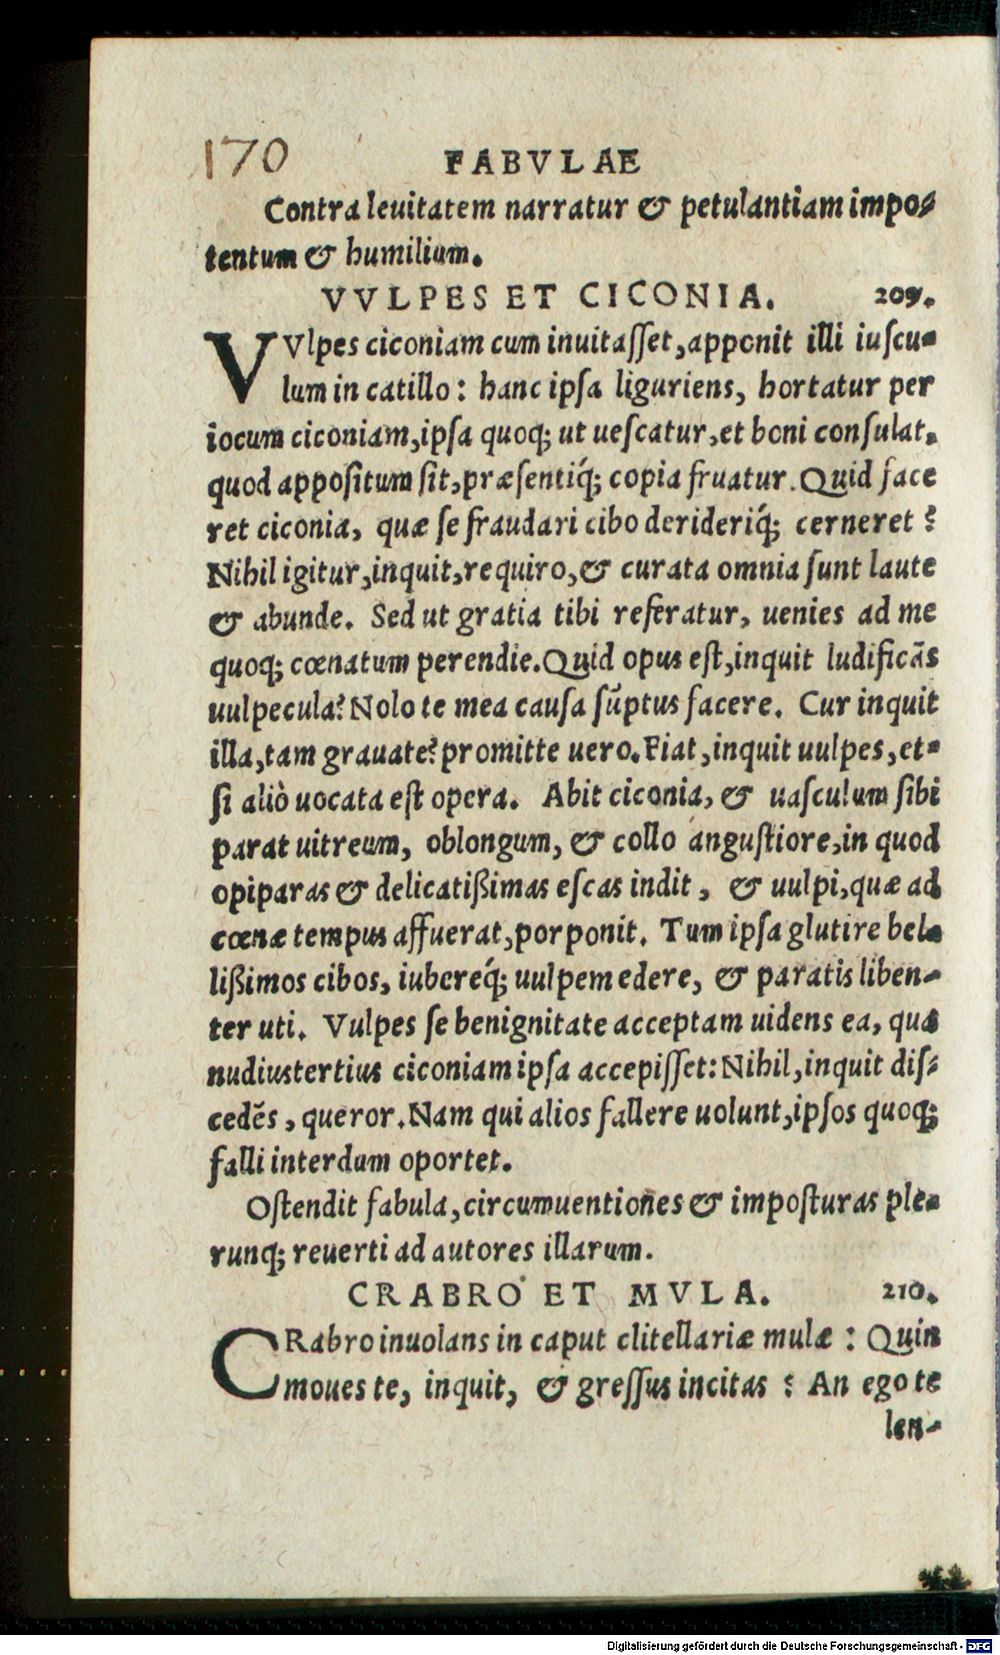 170
FABVLAE
Contra leuitatem narratur & petulantiam impo-
tentum & humilium.
VVLPES ET CICONIA. 209.
VVlpes ciconiam cum inuitasset, apponit illi iuscu-
lum in catillo: hanc ipsa liguriens, hortatur per
iocum ciconiam, ipsa quoq; ut uescatur, et boni consulat,
quod appositum sit, præsentiq́; copia fruatur. Quid face
ret ciconia, quæ se fraudari cibo derideriq́; cerneret?
Nihil igitur, inquit, requiro, & curata omnia sunt laute
& abunde. Sed ut gratia tibi referatur, uenies ad me
quoq; cœnatum perendie. Quid opus est, inquit ludificãs
uulpecula? Nolo te mea causa sũptus facere. Cur inquit
illa, tam grauate? promitte uero. Fiat, inquit uulpes, et-
si aliò uocata est opera. Abit ciconia, & uasculum sibi
parat uitreum, oblongum, & collo angustiore, in quod
opiparas & delicatißimas escas indit, & uulpi, quæ ad
cœnæ tempus affuerat, porponit. Tum ipsa glutire bel-
lißimos cibos, iubereq́; uulpem edere, & paratis liben-
ter uti. Vulpes se benignitate acceptam uidens ea, qua
nudiustertius ciconiam ipsa accepisset: Nihil, inquit dis-
cedẽs, queror. Nam qui alios fallere uolunt, ipsos quoq;
falli interdum oportet.
Ostendit fabula, circumuentiones & imposturas ple-
runq; reuerti ad autores illarum.
CRABRO ET MVLA. 210.
CRabro inuolans in caput clitellariæ mulæ: Quin
moues te, inquit, & gressus incitas? An ego te
len-
Digitalisierung gefördert durch die Deutsche Forschungsgemeinschaft - DFG